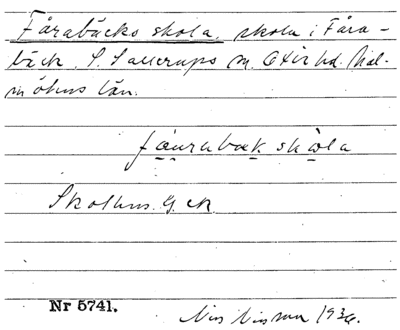 Fårabäcks skola, skola i Fåra-
bäck, S. Sallerups sn. Oxie hd. Mal-
möhus län.
fåurabæk skåla
Skolhus. G. ek.
Nr 5741.
Nils Nilsson 1934.